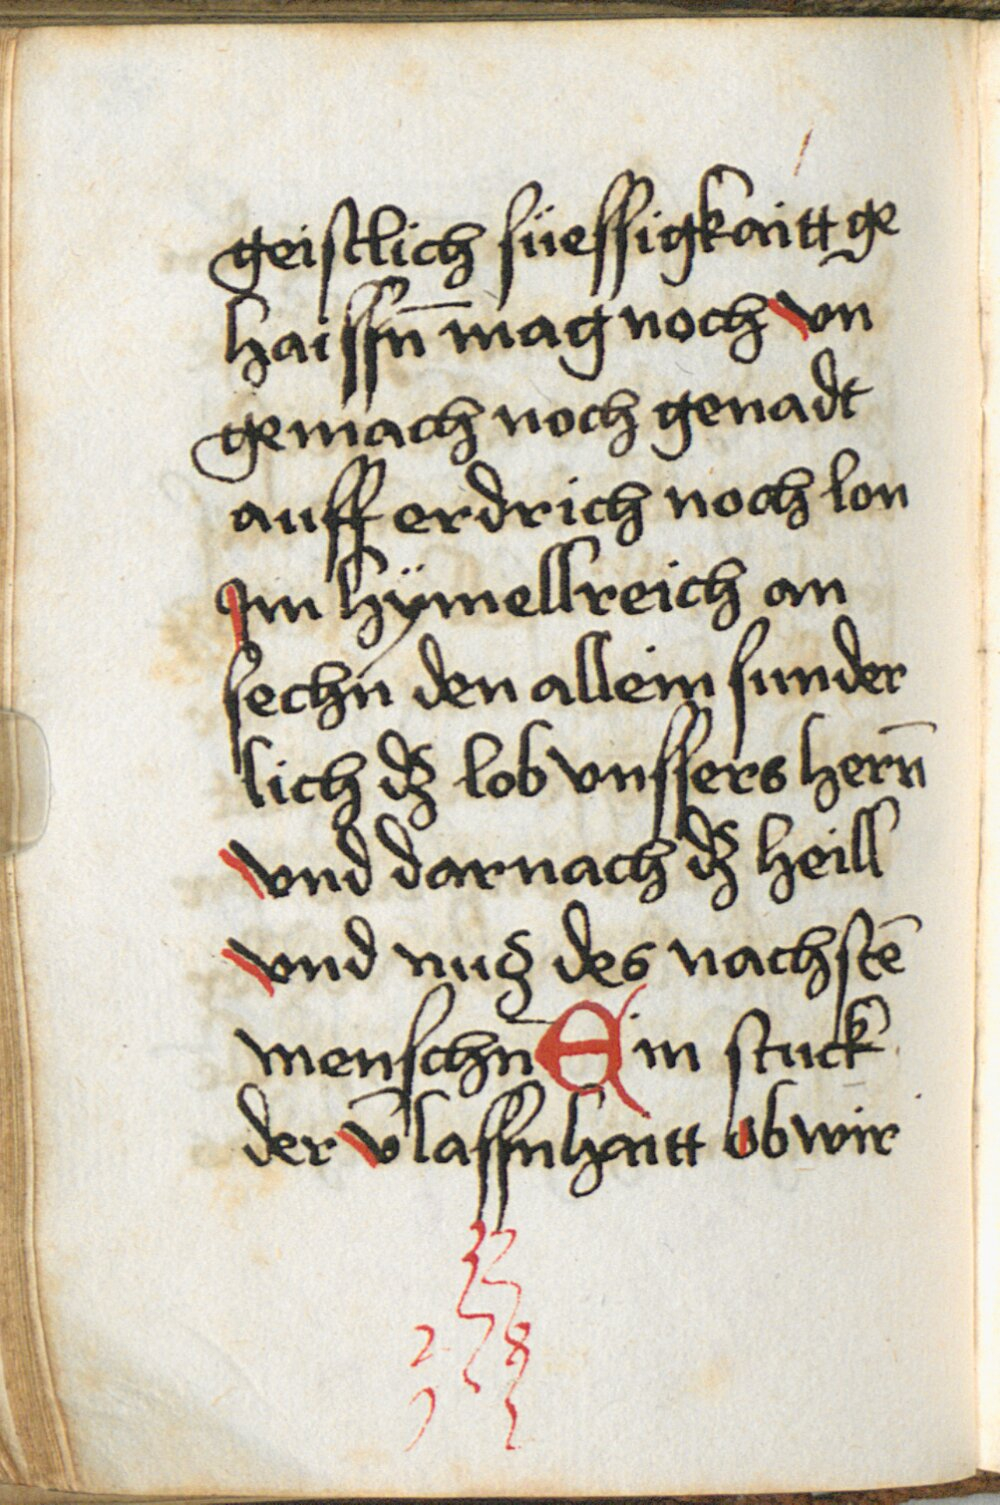 geistlich süessigkaitt ge
haissn̄ mag noch vn
gemach noch genadt
auff erdrich noch lon
Im hÿmellreich an
sechn den allein sunder
lich dʒ lob vnssers hern̄
vnd darnach dʒ heill
vnd nuʒ des nachstē
menschn Ein stuck
der v̄lassnhaitt Ob wir